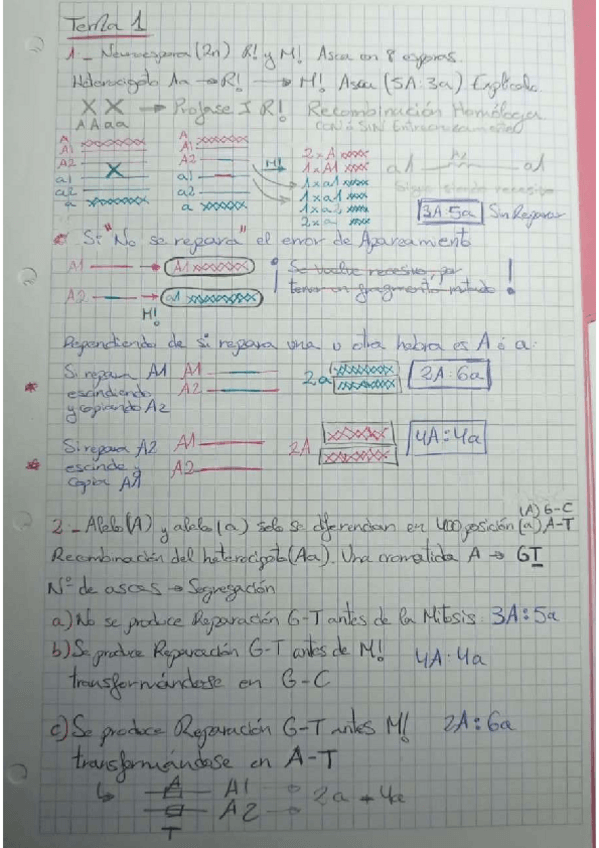 Tema 1
1.- Neurospora (2n) R! y M! Asca en 8 esporas.
Heterocigoto Aa → R! → M! Asca (5A:3a) Explícalo
X X → Profase I R! Recombinación Homóloga
AA aa CON ó SIN Entrecruzamiento
A A 2xA
A1 A1 M! 1xA1
A2 A2 1xa1 a1 A2 a1
a1 a1 1xa1 Sigue siendo
a2 a2 1xa2 3A:5a Sin Reparar
a a 2xa
* Si "No se repara" el error de Apareamiento
A1 → A1 ! Se vuelve recesivo, por !
A2 → a1 tener un fragmento mutado
M!
Dependiendo de si repara una u otra habrá es A ó a:
Si repara A1 A1 2a 2A:6a
* escindiendo A2
y copiando A2
Si repara A2 A1 2A 4A:4a
* escinde y A2
copia A1
(A) G-C
2.- Alelo (A) y alelo (a) solo se diferencian en 400 posición (a) A-T
Recombinación del heterocigoto (Aa). Una cromatida A → GT
Nº de ascas → Segregación
a) No se produce Reparación G-T antes de la Mitosis 3A:5a
b) Se produce Reparación G-T antes de M! 4A:4a
transformándose en G-C
c) Se produce Reparación G-T antes M! 2A:6a
transformándose en A-T
↳ A A1 2a
A2
T